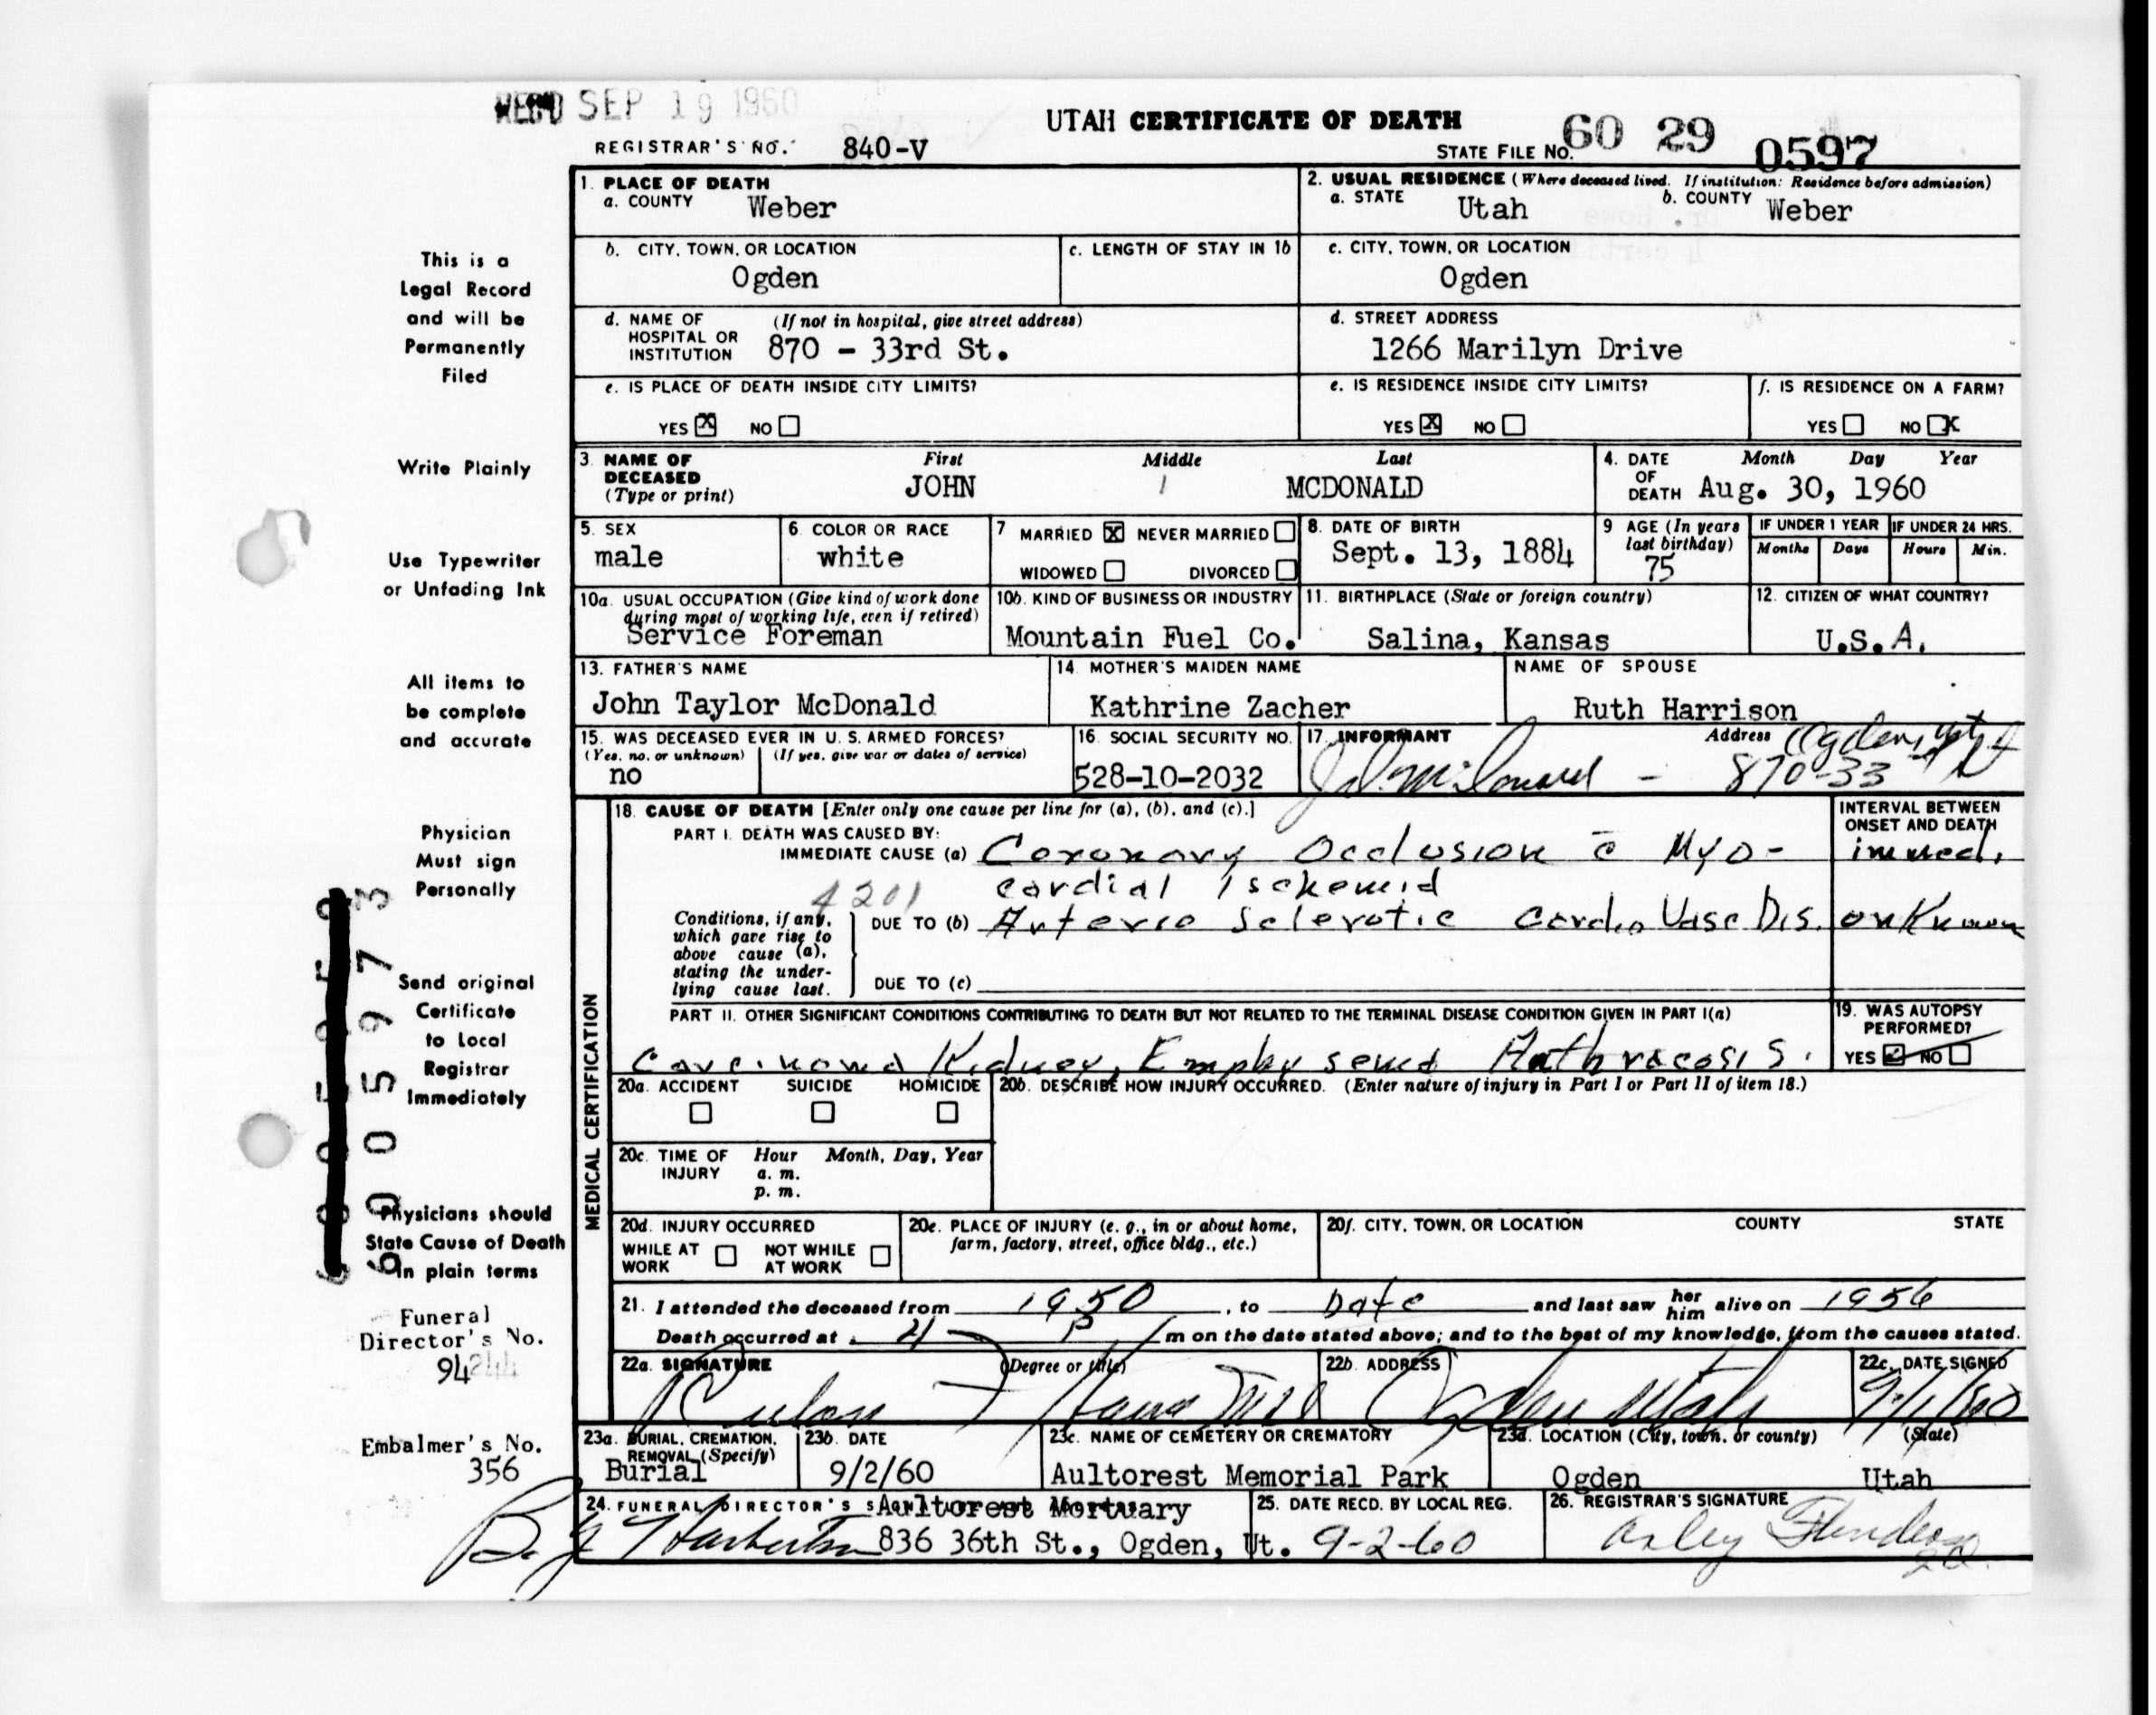 REC'D SEP 19 1960
UTAH CERTIFICATE OF DEATH
REGISTRAR'S NO. 840-V
STATE FILE NO. 60 29 0597
1. PLACE OF DEATH
a. COUNTY Weber
2. USUAL RESIDENCE (Where deceased lived. If institution: Residence before admission)
a. STATE Utah b. COUNTY Weber
b. CITY, TOWN, OR LOCATION
Ogden
c. LENGTH OF STAY IN 1b
c. CITY, TOWN, OR LOCATION
Ogden
d. NAME OF HOSPITAL OR INSTITUTION (If not in hospital, give street address)
870 - 33rd St.
d. STREET ADDRESS
1266 Marilyn Drive
e. IS PLACE OF DEATH INSIDE CITY LIMITS?
YES X NO
e. IS RESIDENCE INSIDE CITY LIMITS?
YES X NO
f. IS RESIDENCE ON A FARM?
YES NO X
3. NAME OF DECEASED (Type or print)
First Middle Last
JOHN MCDONALD
4. DATE OF DEATH Month Day Year
Aug. 30, 1960
5. SEX
male
6. COLOR OR RACE
white
7 MARRIED X NEVER MARRIED
WIDOWED DIVORCED
8. DATE OF BIRTH
Sept. 13, 1884
9 AGE (In years last birthday)
75
IF UNDER 1 YEAR IF UNDER 24 HRS.
Months Days Hours Min.
10a. USUAL OCCUPATION (Give kind of work done during most of working life, even if retired)
Service Foreman
10b. KIND OF BUSINESS OR INDUSTRY
Mountain Fuel Co.
11. BIRTHPLACE (State or foreign country)
Salina, Kansas
12. CITIZEN OF WHAT COUNTRY?
U.S.A.
13. FATHER'S NAME
John Taylor McDonald
14. MOTHER'S MAIDEN NAME
Kathrine Zacher
NAME OF SPOUSE
Ruth Harrison
15. WAS DECEASED EVER IN U. S. ARMED FORCES?
(Yes, no, or unknown) (If yes, give war or dates of service)
no
16. SOCIAL SECURITY NO.
528-10-2032
17. INFORMANT Address
Ogden, Ut
McDonald - 870-33rd St
MEDICAL CERTIFICATION
18. CAUSE OF DEATH [Enter only one cause per line for (a), (b), and (c).]
INTERVAL BETWEEN ONSET AND DEATH
PART I. DEATH WAS CAUSED BY:
IMMEDIATE CAUSE (a) Coronary Occlusion c̄ Myo- immed.
cardial Ischemia
4201
Conditions, if any, which gave rise to above cause (a), stating the underlying cause last.
DUE TO (b) Arterio Sclerotic Cardio Vasc Dis. unknown
DUE TO (c)
PART II. OTHER SIGNIFICANT CONDITIONS CONTRIBUTING TO DEATH BUT NOT RELATED TO THE TERMINAL DISEASE CONDITION GIVEN IN PART I(a)
Carcinoma Kidney, Emphysema Anthracosis.
19. WAS AUTOPSY PERFORMED?
YES NO
20a. ACCIDENT SUICIDE HOMICIDE
20b. DESCRIBE HOW INJURY OCCURRED. (Enter nature of injury in Part I or Part II of item 18.)
20c. TIME OF INJURY Hour Month, Day, Year
a. m.
p. m.
20d. INJURY OCCURRED
WHILE AT WORK NOT WHILE AT WORK
20e. PLACE OF INJURY (e. g., in or about home, farm, factory, street, office bldg., etc.)
20f. CITY, TOWN, OR LOCATION COUNTY STATE
21. I attended the deceased from 1950, to Date and last saw her him alive on 1956
Death occurred at 4 P m on the date stated above; and to the best of my knowledge, from the causes stated.
22a. SIGNATURE (Degree or title)
Rulon F
22b. ADDRESS
Ogden Utah
22c. DATE SIGNED
9/1/60
23a. BURIAL, CREMATION, REMOVAL (Specify)
Burial
23b. DATE
9/2/60
23c. NAME OF CEMETERY OR CREMATORY
Aultorest Memorial Park
23d. LOCATION (City, town, or county) (State)
Ogden Utah
24. FUNERAL DIRECTOR'S
Aultorest Mortuary
836 36th St., Ogden, Ut.
25. DATE RECD. BY LOCAL REG.
9-2-60
26. REGISTRAR'S SIGNATURE
This is a
Legal Record
and will be
Permanently
Filed
Write Plainly
Use Typewriter
or Unfading Ink
All items to
be complete
and accurate
Physician
Must sign
Personally
Send original
Certificate
to Local
Registrar
Immediately
Physicians should
State Cause of Death
in plain terms
Funeral
Director's No.
94244
Embalmer's No.
356
6005973